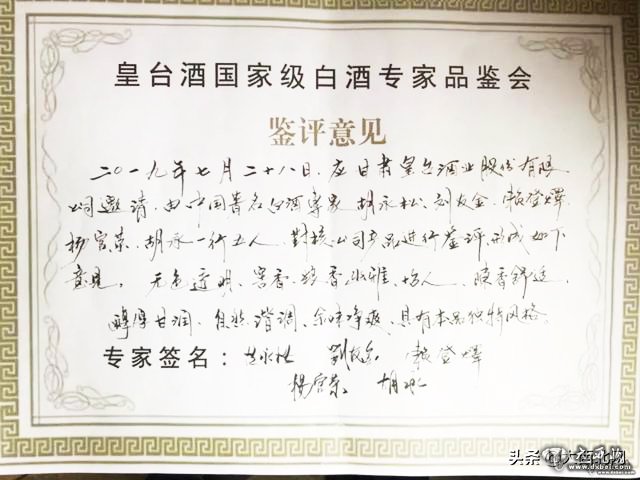 皇台酒国家级白酒专家品鉴会
鉴评意见
二〇一九年七月二十八日,应甘肃皇台酒业股份有限
公司邀请,由中国著名白酒专家胡永松、刘友金、赖登燡、
杨官荣、胡永一行五人,对该公司产品进行鉴评,形成如下
意见,无色透明、窖香 幽雅、怡人、陈香舒适、
醇厚甘润、自然谐调、余味净爽、具有本品独特风格。
专家签名:胡永松 刘友金 赖登燡
杨官荣 胡永
头条 @大西北网
大西北网
www.dxbei.com